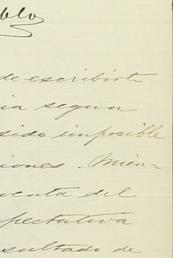 blo
de escribirte
ia segun
sido imposible
iones. Mien=
uenta del
pectativa
sultado de